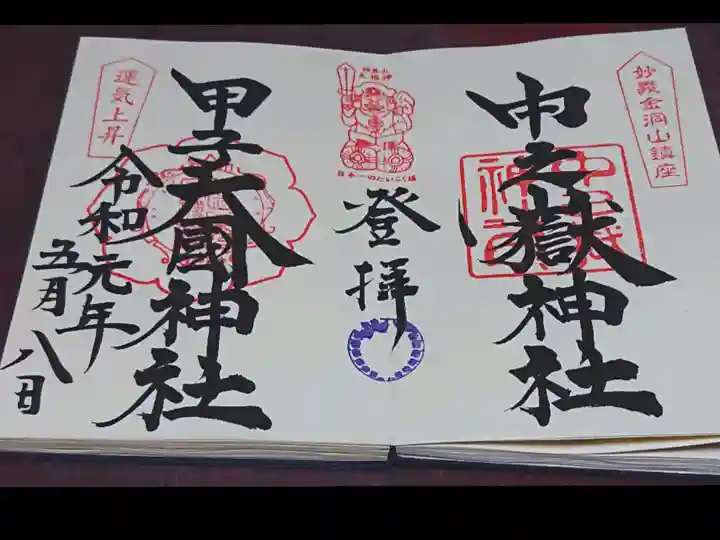 妙義金洞山鎮座
中之嶽神社
登拝
日本一のだいこく様
甲子大國神社
運気上昇
令和元年
五月八日